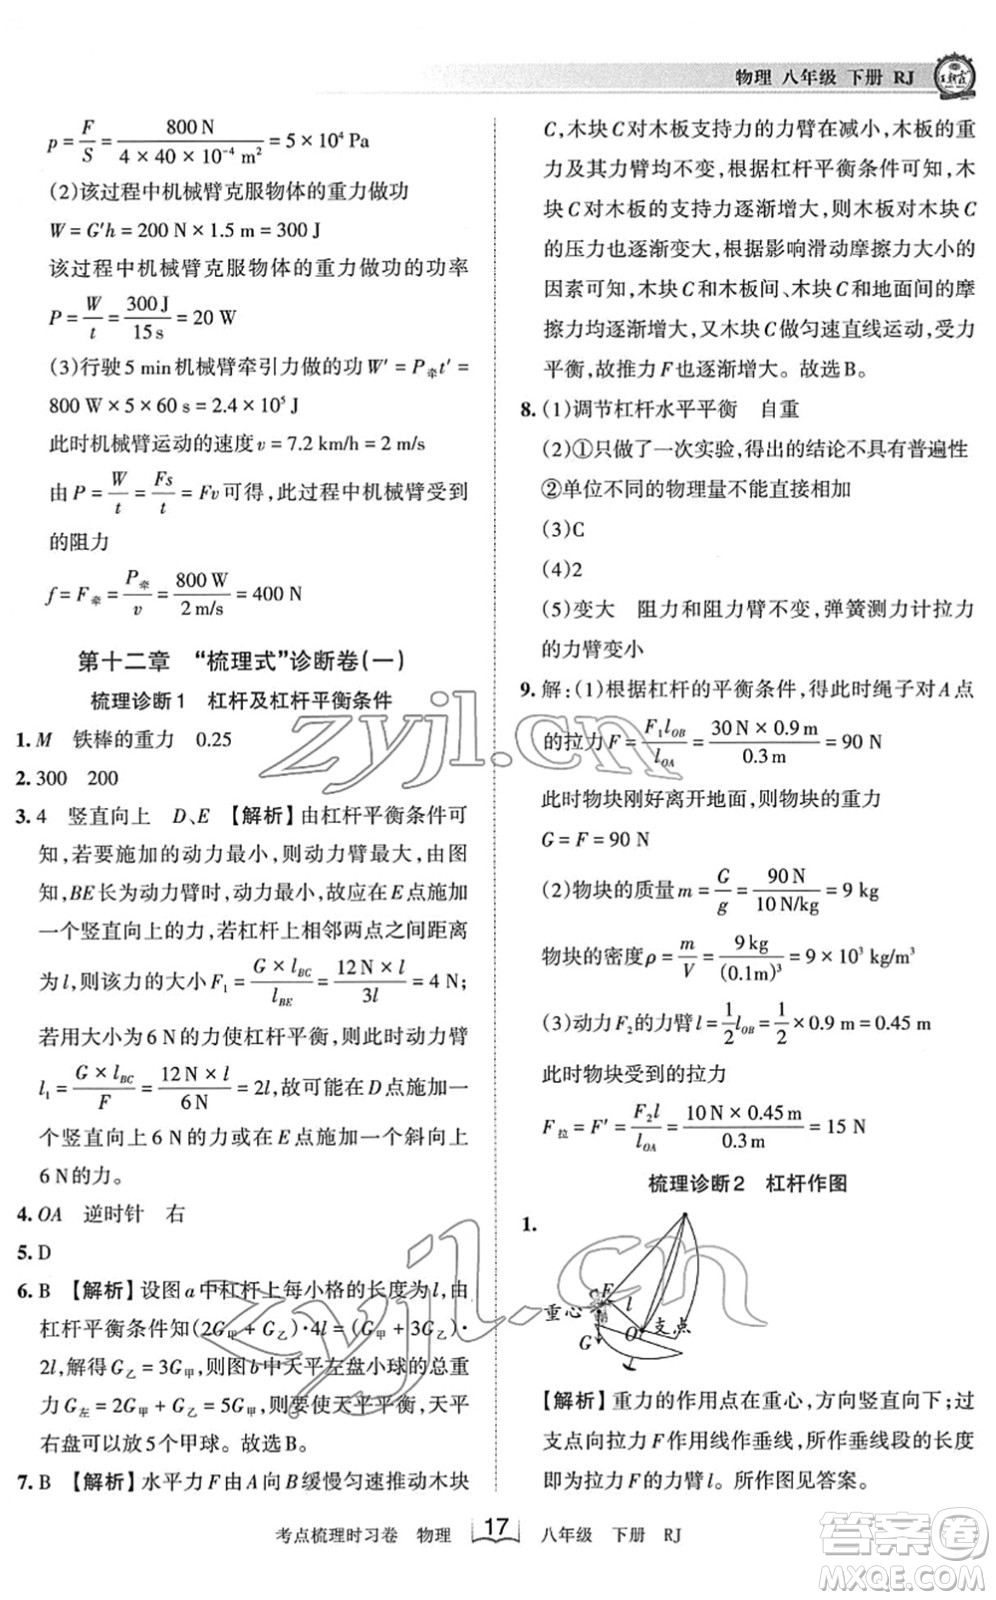 物理 八年级 下册 RJ
王朝霞
p = F/S = 800 N / (4 × 40 × 10⁻⁴ m²) = 5 × 10⁴ Pa
(2)该过程中机械臂克服物体的重力做功
W = G′h = 200 N × 1.5 m = 300 J
该过程中机械臂克服物体的重力做功的功率
P = W/t = 300 J / 15 s = 20 W
(3)行驶 5 min 机械臂牵引力做的功 W′ = P牵t′ =
800 W × 5 × 60 s = 2.4 × 10⁵ J
此时机械臂运动的速度 v = 7.2 km/h = 2 m/s
由 P = W/t = Fs/t = Fv 可得,此过程中机械臂受到
的阻力
f = F牵 = P牵/v = 800 W / 2 m/s = 400 N
第十二章 “梳理式”诊断卷(一)
梳理诊断1 杠杆及杠杆平衡条件
1. M 铁棒的重力 0.25
2. 300 200
3. 4 竖直向上 D、E 【解析】由杠杆平衡条件可
知,若要施加的动力最小,则动力臂最大,由图
知,BE长为动力臂时,动力最小,故应在E点施加
一个竖直向上的力,若杠杆上相邻两点之间距离
为 l,则该力的大小 F₁ = G × l_BC / l_BE = 12 N × l / 3l = 4 N;
若用大小为 6 N 的力使杠杆平衡,则此时动力臂
l₁ = G × l_BC / F = 12 N × l / 6 N = 2l,故可能在 D 点施加一
个竖直向上 6 N 的力或在 E 点施加一个斜向上
6 N 的力。
4. OA 逆时针 右
5. D
6. B 【解析】设图 a 中杠杆上每小格的长度为 l,由
杠杆平衡条件知(2G甲 + G乙)·4l = (G甲 + 3G乙)·
2l,解得 G乙 = 3G甲,则图 b 中天平左盘小球的总重
力 G左 = 2G甲 + G乙 = 5G甲,要使天平平衡,天平
右盘可以放 5 个甲球。故选 B。
7. B 【解析】水平力 F 由 A 向 B 缓慢匀速推动木块
C,木块 C 对木板支持力的力臂在减小,木板的重
力及力臂均不变,根据杠杆平衡条件可知,木
块 C 对木板的支持力逐渐增大,则木板对木块 C
的压力也逐渐变大,根据影响滑动摩擦力大小的
因素可知,木块 C 和木板间、木块 C 和地面间的摩
擦力均逐渐增大,又木块 C 做匀速直线运动,受力
平衡,故推力 F 也逐渐增大。故选 B。
8. (1)调节杠杆水平平衡 自重
(2)①只做了一次实验,得出的结论不具有普遍性
②单位不同的物理量不能直接相加
(3)C
(4)2
(5)变大 阻力和阻力臂不变,弹簧测力计拉力
的力臂变小
9. 解:(1)根据杠杆的平衡条件,得此时绳子对 A 点
的拉力 F = F₁l_OB / l_OA = 30 N × 0.9 m / 0.3 m = 90 N
此时物块刚好离开地面,则物块的重力
G = F = 90 N
(2)物块的质量 m = G/g = 90 N / 10 N/kg = 9 kg
物块的密度 ρ = m/V = 9 kg / (0.1m)³ = 9 × 10³ kg/m³
(3)动力 F₂ 的力臂 l = 1/2 l_OB = 1/2 × 0.9 m = 0.45 m
此时物块受到的拉力
F拉 = F′ = F₂l / l_OA = 10 N × 0.45 m / 0.3 m = 15 N
梳理诊断2 杠杆作图
1.
F
l
重心
O
支点
G
【解析】重力的作用点在重心,方向竖直向下;过
支点向拉力 F 作用线作垂线,所作垂线段的长度
即为拉力 F 的力臂 l。所作图见答案。
考点梳理时习卷 物理 17 八年级 下册 RJ
zyjl.cn
zyjl.cn
答案圈
MXQE.COM